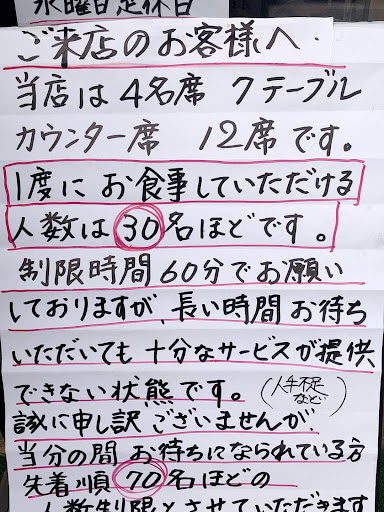 水曜日定休日
ご来店のお客様へ
当店は4名席 7テーブル
カウンター席 12席です。
1度にお食事していただける
人数は30名ほどです。
制限時間60分でお願い
しておりますが、長い時間お待ち
いただいても十分なサービスが提供
できない状態です。(人手不足など)
誠に申し訳ございませんが、
当分の間 お待ちになられている方
先着順 70名ほどの
人数制限とさせていただきます